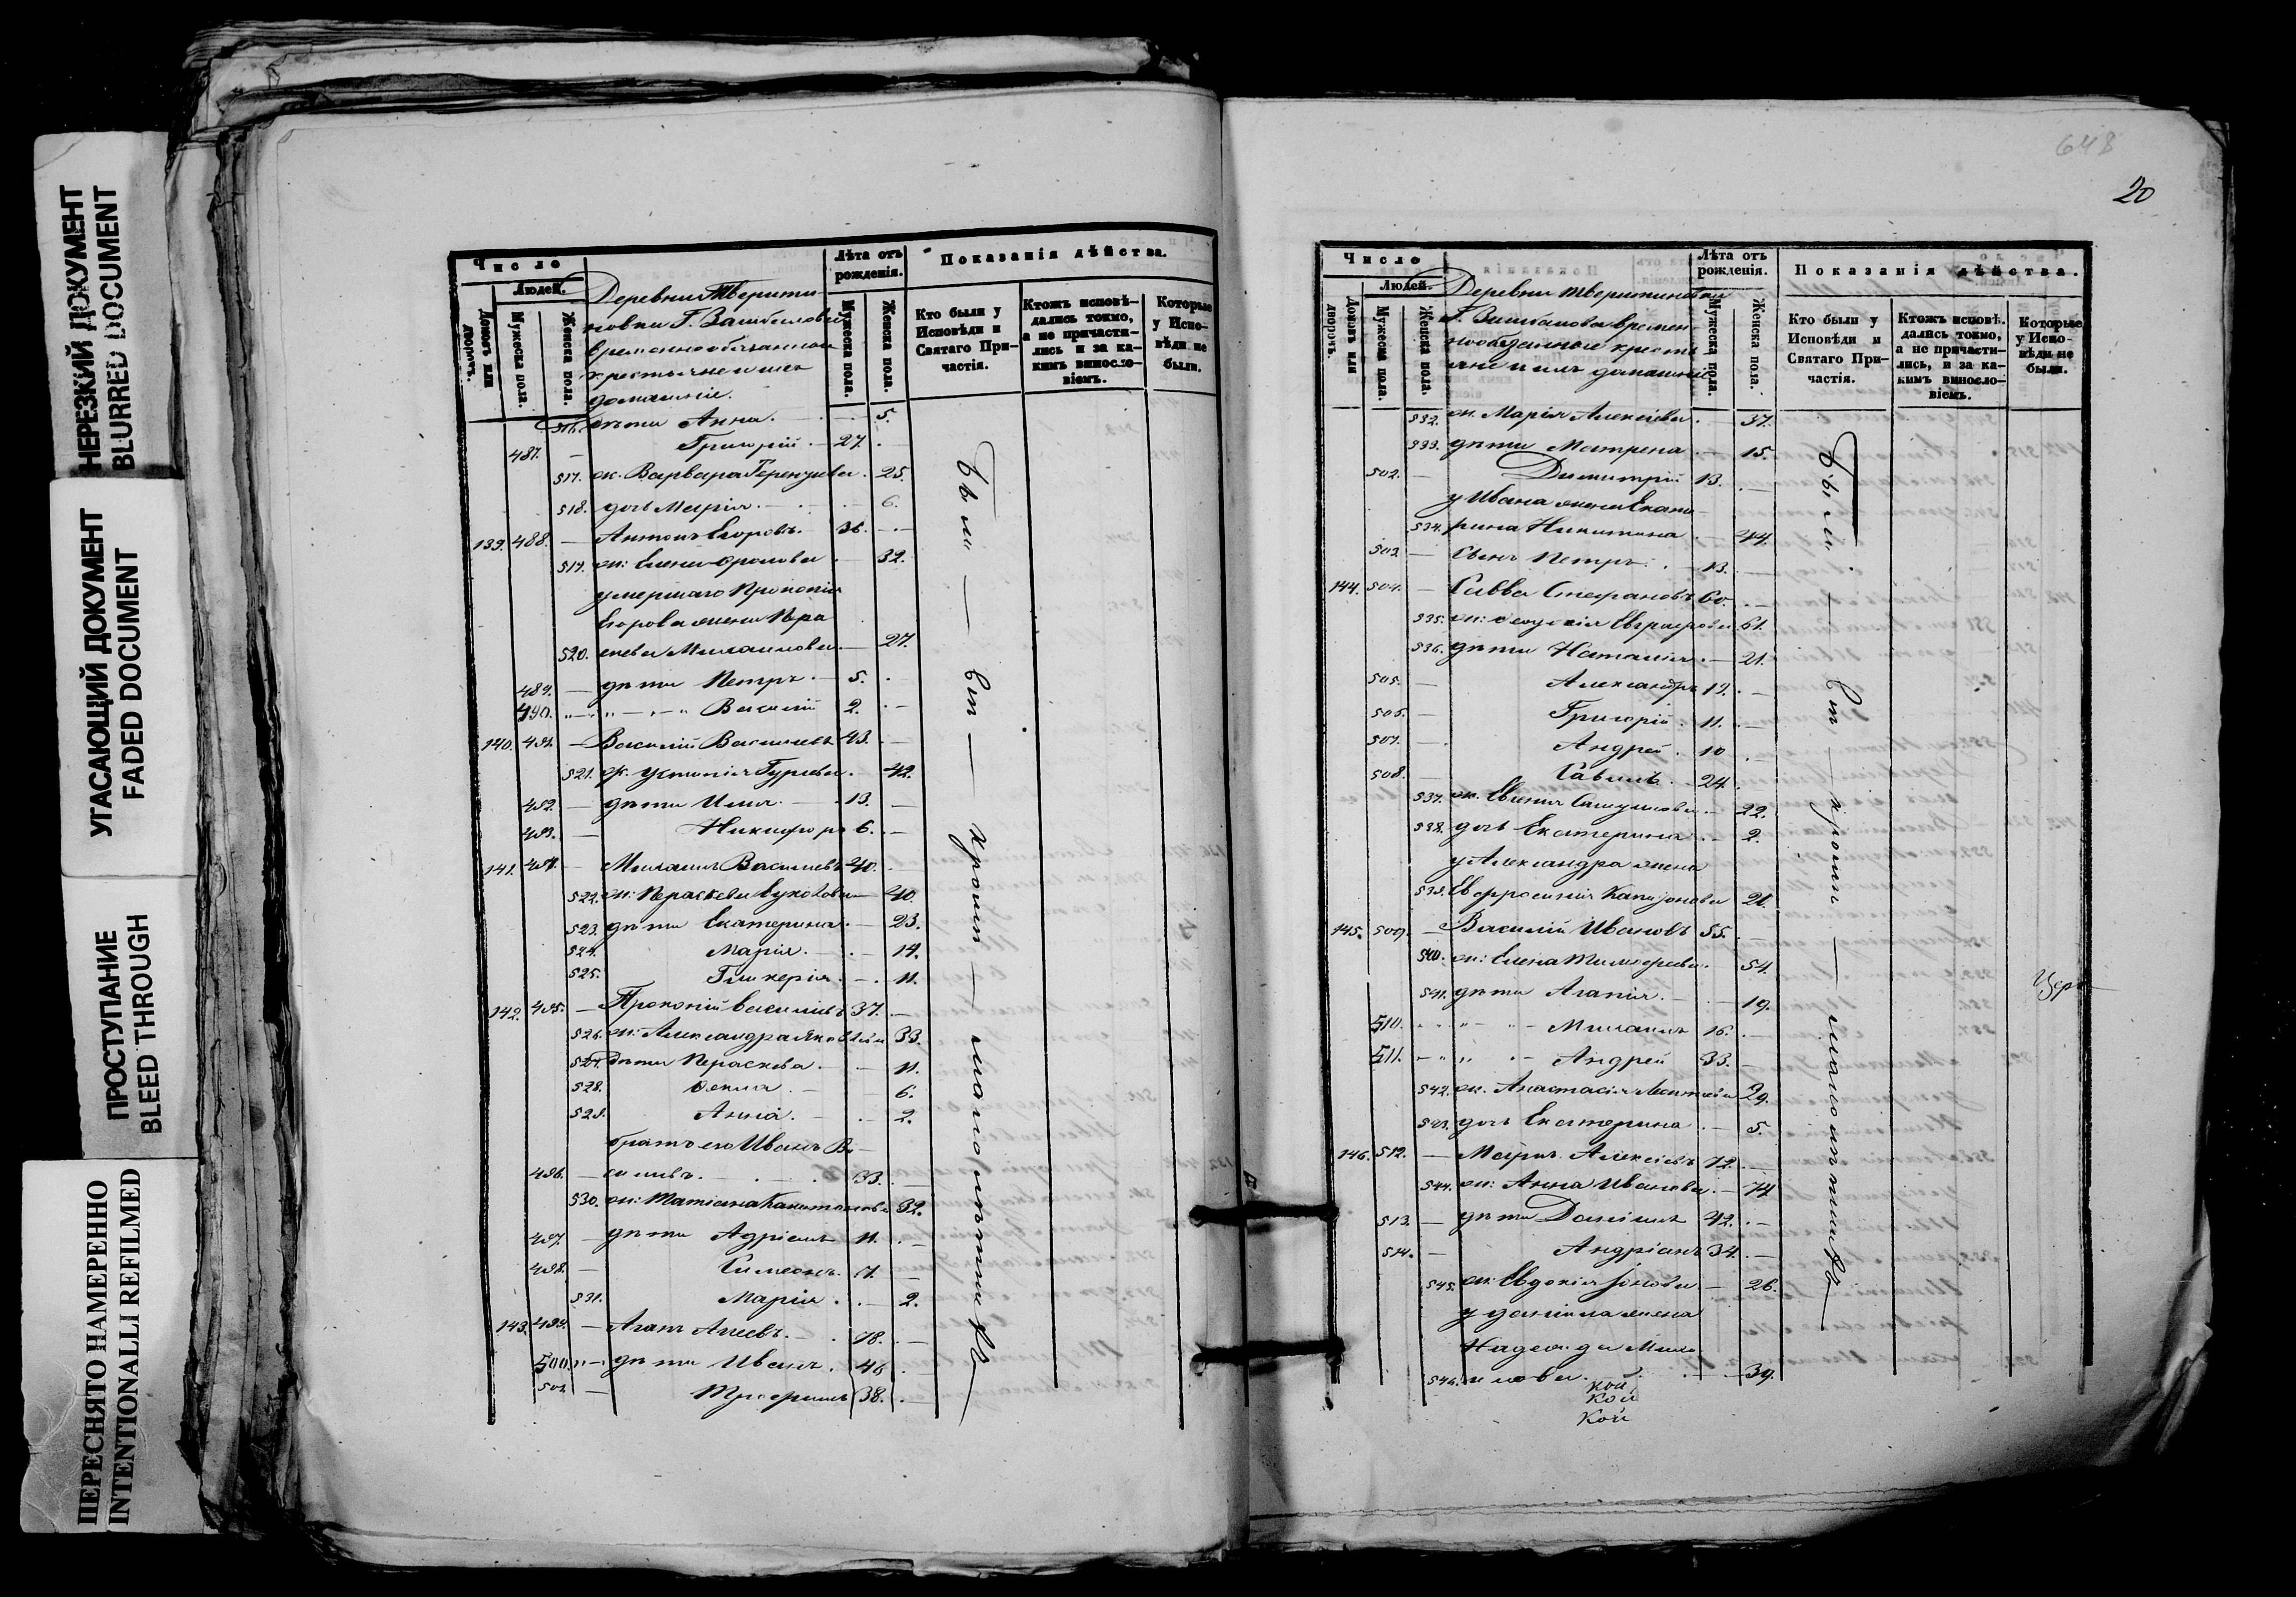 НЕРЕЗКИЙ ДОКУМЕНТ
BLURRED DOCUMENT
УГАСАЮЩИЙ ДОКУМЕНТ
FADED DOCUMENT
ПРОСТУПАНИЕ
BLEED THROUGH
ПЕРЕСНЯТО НАМЕРЕННО
INTENTIONALLI REFILMED
Число
Людей.
Домовъ или дворовъ.
Мужеска пола.
Женска пола.
Деревни Тверити
новки Г.
временнообязанные
крестьяне и ихъ
домашніе.
Лѣта отъ рожденія.
Мужеска пола.
Женска пола.
Показанія дѣйства.
Кто были у Исповѣди и Святаго Причастія.
Ктожъ исповѣдались токмо, а не причастились и за какимъ винословіемъ.
Которые у Исповѣди не были.
516. дѣти Анна. 5.
487. Григорій 27.
517. ж. Варвара 25.
518. дочь Марія 6.
139. 488. Антонъ Егоровъ 36.
519. ж: Елена Фролова 32.
умершаго Прокопія
Егорова жена Пра
520. скева Михаилова 27.
489. дѣти Петръ 5.
490. Василій 2.
140. 491. Василій Васильевъ 43.
521. ж. Устинія Гурьева 42.
492. дѣти Илья 13.
493. Никифоръ 6.
141. 494. Михаилъ Васильевъ 40.
522. ж: Параскева 40.
523. дѣти Екатерина 23.
524. Марія 14.
525. Гликерія 11.
142. 495. Прокопій Васильевъ 37.
526. ж: Александра Яковлева 33.
527. дѣти Параскева 11.
528. Фекла 6.
529. Анна 2.
братъ его Иванъ Ва
496. сильевъ 33.
530. ж: Татіана Капитонова 32.
497. дѣти Адріанъ 11.
498. Симеонъ 7.
531. Марія 2.
143. 499. Агапъ 78.
500. дѣти Иванъ 46
501. Трофимъ 38.
Были — вси — кромѣ — малолѣтнихъ
648
20
Число
Людей.
Домовъ или дворовъ.
Мужеска пола.
Женска пола.
Деревни Тверитиновки
Г. времен
нообязанные кресть
яне и ихъ домашніе
Лѣта отъ рожденія.
Мужеска пола.
Женска пола.
Показанія дѣйства.
Кто были у Исповѣди и Святаго Причастія.
Ктожъ исповѣдались токмо, а не причастились, и за какимъ винословіемъ.
Которые у Исповѣди не были.
532. ж. Марія Алексѣева 37.
533. дѣти Матрена 15.
502. Димитрій 13.
у Ивана жена Екате
534. рина Никитина 44.
503. Сынъ Петръ 13.
144. 504. Савва Стефановъ 60.
535. ж: 61.
536. дѣти Наталія 21.
505. Александръ 19.
506. Григорій 11.
507. Андрей 10
508. 24.
537. ж. Евгенія 22.
538. дочь Екатерина 2.
у Александра жена
539. Евфросинія 21.
145. 509. Василій Ивановъ 55.
540. ж: Елена Тимофеева 54.
541. дѣти Агапія 19.
510. Михаилъ 16.
511. Андрей 33.
542. ж. Анастасія 29.
543. дочь Екатерина 5.
146. 512. Алексѣевъ 72.
544. ж: Анна Иванова 74
513. дѣти Даніилъ 42.
514. Андріанъ 34.
545. ж: Евдокія Іонова 26.
у Даніила жена
Надежда Миха
546. илова 39.
Были — вси — кромѣ — малолѣтнихъ
Цер
кой
кой
кой